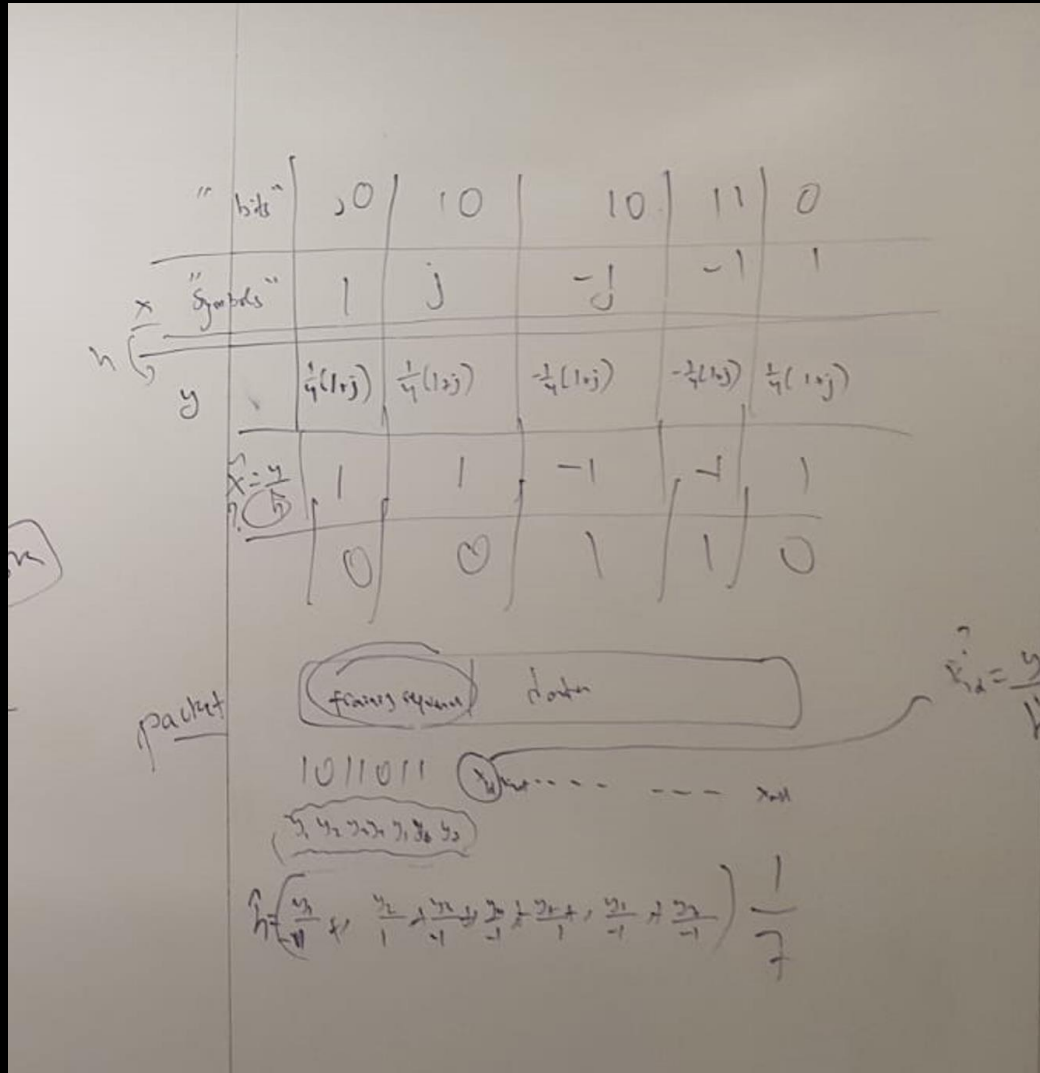 "bits" 00 10 10 11 0
x "Symbols" 1 j -j -1 1
h
y 1/4(1+j) 1/4(1+j) -1/4(1+j) -1/4(1+j) 1/4(1+j)
x̂ = y/ĥ 1 1 -1 -1 1
?
0 0 1 1 0
packet training sequence data
1011011 ---- ---
y1 y2 y3 y4 y5 y6 y7
ĥ = (y1/-1 + y2/1 + y3/-1 + y4/-1 + y5/1 + y6/-1 + y7/-1) 1/7